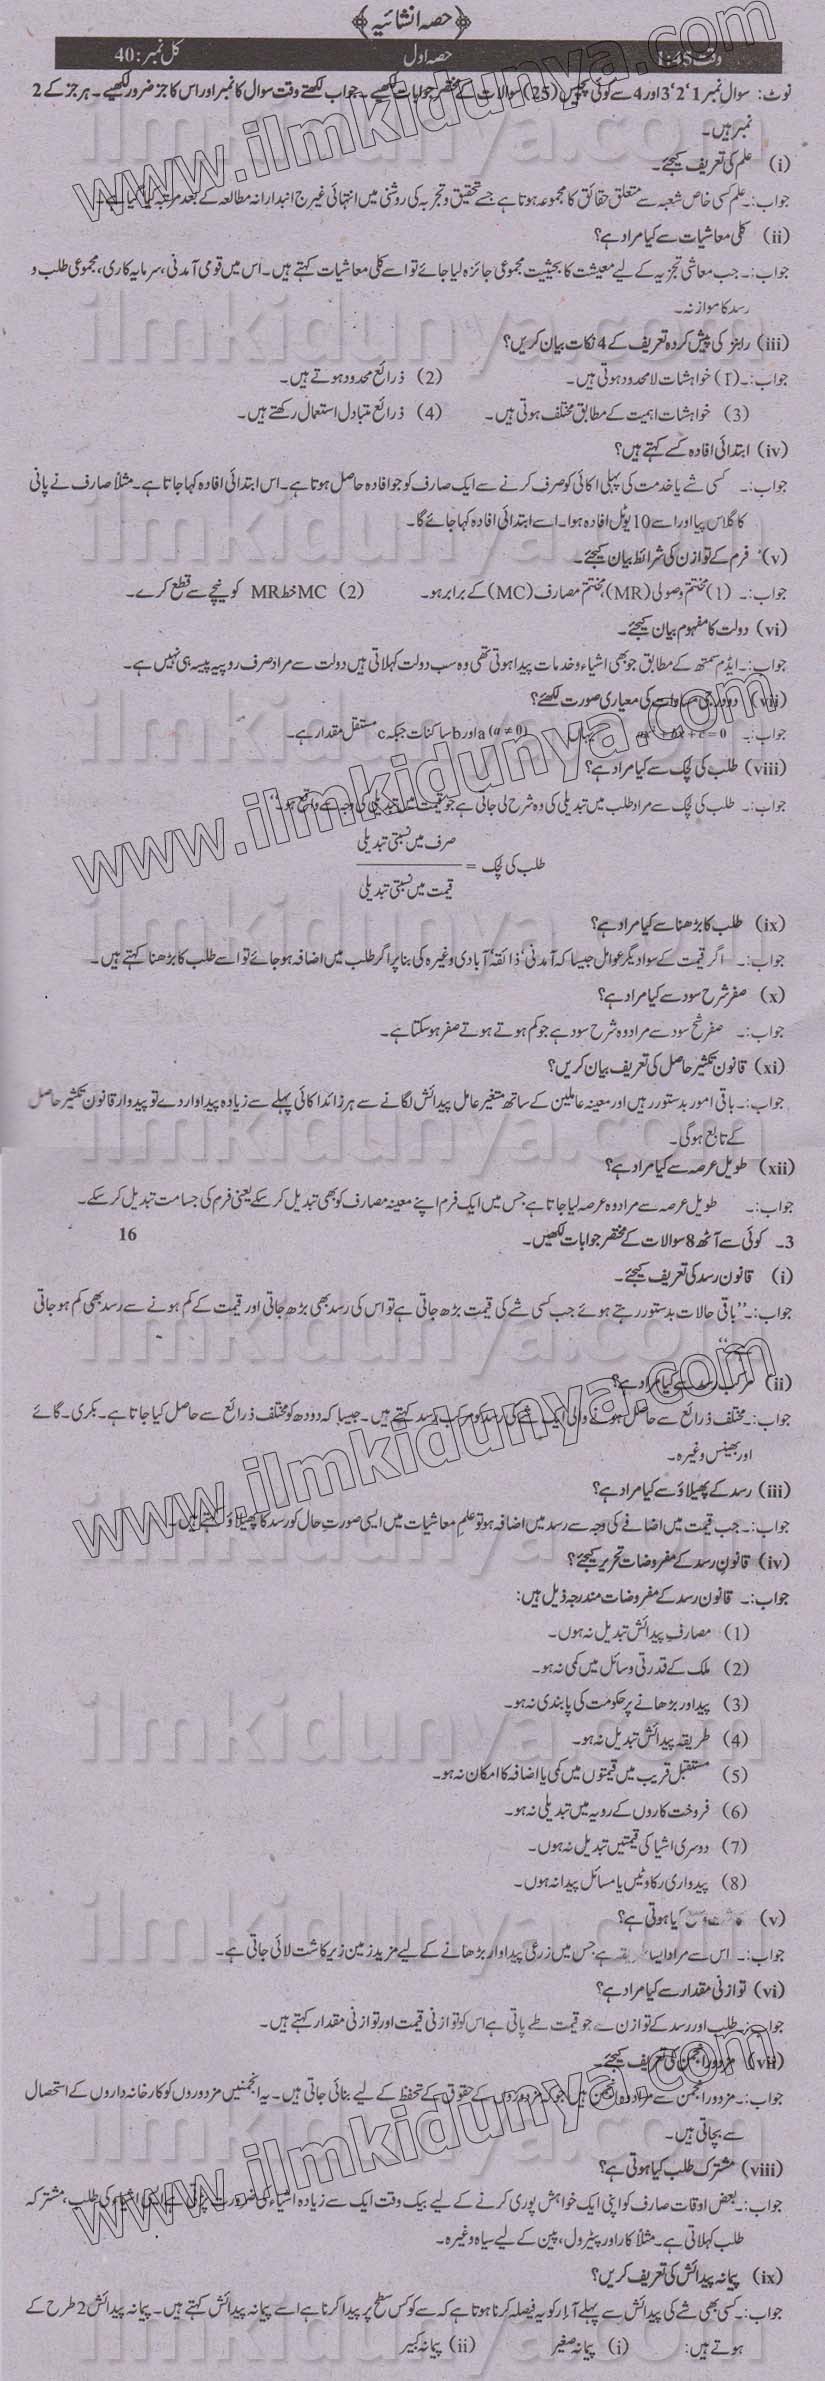 حصہ انشائیہ
وقت 1:45 حصہ اول کل نمبر: 40
نوٹ: سوال نمبر 1'2'3 اور 4 سے کوئی پچیس (25) سوالات کے مختصر جوابات لکھیے۔ جواب لکھتے وقت سوال کا نمبر اور اس کا جز ضرور لکھیے۔ ہر جز کے 2
نمبر ہیں۔
(i) علم کی تعریف کیجئے۔
جواب:۔ علم کسی خاص شعبہ سے متعلق حقائق کا مجموعہ ہوتا ہے جسے تحقیق و تجربہ کی روشنی میں انتہائی غیر جانبدارانہ مطالعہ کے بعد مرتب کیا گیا ہے۔
(ii) کلی معاشیات سے کیا مراد ہے؟
جواب:۔ جب معاشی تجزیہ کے لیے معیشت کا بحیثیت مجموعی جائزہ لیا جائے تو اسے کلی معاشیات کہتے ہیں۔ اس میں قومی آمدنی، سرمایہ کاری، مجموعی طلب و
رسد کا موازنہ۔
(iii) رابنز کی پیش کردہ تعریف کے 4 نکات بیان کریں؟
جواب:۔ (1) خواہشات لامحدود ہوتی ہیں۔ (2) ذرائع محدود ہوتے ہیں۔
(3) خواہشات اہمیت کے مطابق مختلف ہوتی ہیں۔ (4) ذرائع متبادل استعمال رکھتے ہیں۔
(iv) ابتدائی افادہ کسے کہتے ہیں؟
جواب:۔ کسی شے یا خدمت کی پہلی اکائی کو صرف کرنے سے ایک صارف کو جو افادہ حاصل ہوتا ہے۔ اس ابتدائی افادہ کہا جاتا ہے۔ مثلاً صارف نے پانی
کا گلاس پیا اور اسے 10 یوٹل افادہ ہوا۔ اسے ابتدائی افادہ کہا جائے گا۔
(v) فرم کے توازن کی شرائط بیان کیجئے۔
جواب:۔ (1) مختتم وصولی (MR)، مختتم مصارف (MC) کے برابر ہو۔ (2) MC خط MR کو نیچے سے قطع کرے۔
(vi) دولت کا مفہوم بیان کیجئے۔
جواب:۔ ایڈم سمتھ کے مطابق جو بھی اشیاء و خدمات پیدا ہوتی تھی وہ سب دولت کہلاتی ہیں دولت سے مراد صرف روپیہ پیسہ ہی نہیں ہے۔
(vii) دو درجی مساوات کی معیاری صورت لکھئے؟
جواب:۔ ax² + bx + c = 0 یہاں (a ≠ 0) a اور b ساکنات جبکہ c مستقل مقدار ہے۔
(viii) طلب کی لچک سے کیا مراد ہے؟
جواب:۔ طلب کی لچک سے مراد طلب میں تبدیلی کی وہ شرح لی جاتی ہے جو قیمت میں تبدیلی کی وجہ سے واقع ہو۔"
طلب کی لچک = صرف میں نسبتی تبدیلی
قیمت میں نسبتی تبدیلی
(ix) طلب کا بڑھنا سے کیا مراد ہے؟
جواب:۔ اگر قیمت کے سوا دیگر عوامل جیسا کہ آمدنی' ذائقہ' آبادی وغیرہ کی بنا پر اگر طلب میں اضافہ ہو جائے تو اسے طلب کا بڑھنا کہتے ہیں۔
(x) صفر شرح سود سے کیا مراد ہے؟
جواب:۔ صفر شح سود سے مراد وہ شرح سود ہے جو کم ہوتے ہوتے صفر ہو سکتا ہے۔
(xi) قانون تکثیر حاصل کی تعریف بیان کریں؟
جواب:۔ باقی امور بدستور رہیں اور معینہ عاملین کے ساتھ متغیر عامل پیدائش لگانے سے ہر زائد اکائی پہلے سے زیادہ پیداوار دے تو پیدوار قانون تکثیر حاصل
کے تابع ہوگی۔
(xii) طویل عرصہ سے کیا مراد ہے؟
جواب:۔ طویل عرصہ سے مراد وہ عرصہ لیا جاتا ہے جس میں ایک فرم اپنے معینہ مصارف کو بھی تبدیل کر سکے یعنی فرم کی جسامت تبدیل کر سکے۔
3۔ کوئی سے آٹھ 8 سوالات کے مختصر جوابات لکھیں۔ 16
(i) قانون رسد کی تعریف کیجئے۔
جواب:۔ "باقی حالات بدستور رہتے ہوئے جب کسی شے کی قیمت بڑھ جاتی ہے تو اس کی رسد بھی بڑھ جاتی اور قیمت کے کم ہونے سے رسد بھی کم ہو جاتی
ہے۔"
(ii) مرکب رسد سے کیا مراد ہے؟
جواب:۔ مختلف ذرائع سے حاصل ہونے والی ایک شے کی رسد کو مرکب رسد کہتے ہیں۔ جیسا کہ دودھ کو مختلف ذرائع سے حاصل کیا جاتا ہے۔ بکری۔ گائے
اور بھینس وغیرہ۔
(iii) رسد کے پھیلاؤ سے کیا مراد ہے؟
جواب:۔ جب قیمت میں اضافے کی وجہ سے رسد میں اضافہ ہو تو علم معاشیات میں ایسی صورت حال کو رسد کا پھیلاؤ کہتے ہیں۔
(iv) قانون رسد کے مفروضات تحریر کیجئے؟
جواب:۔ قانون رسد کے مفروضات مندرجہ ذیل ہیں:
(1) مصارف پیدائش تبدیل نہ ہوں۔
(2) ملک کے قدرتی وسائل میں کمی نہ ہو۔
(3) پیداور بڑھانے پر حکومت کی پابندی نہ ہو۔
(4) طریقہ پیدائش تبدیل نہ ہو۔
(5) مستقبل قریب میں قیمتوں میں کمی یا اضافہ کا امکان نہ ہو۔
(6) فروخت کاروں کے رویہ میں تبدیلی نہ ہو۔
(7) دوسری اشیا کی قیمتیں تبدیل نہ ہوں۔
(8) پیدواری رکاوٹیں یا مسائل پیدا نہ ہوں۔
(v) کیا ہوتی ہے؟
جواب:۔ اس سے مراد ایسا طریقہ ہے جس میں زرعی پیداوار بڑھانے کے لیے مزید زمین زیر کاشت لائی جاتی ہے۔
(vi) توازنی مقدار سے کیا مراد ہے؟
جواب:۔ طلب اور رسد کے توازن سے جو قیمت طے پاتی ہے اس کو توازنی قیمت اور توازنی مقدار کہتے ہیں۔
(vii) مزدور انجمن کی تعریف کیجئے۔
جواب:۔ مزدور انجمن سے مراد وہ انجمن ہیں جو کہ مزدوروں کے حقوق کے تحفظ کے لیے بنائی جاتی ہیں۔ یہ انجمنیں مزدوروں کو کارخانہ داروں کے استحصال
سے بچاتی ہیں۔
(viii) مشترک طلب کیا ہوتی ہے؟
جواب:۔ بعض اوقات صارف کو اپنی ایک خواہش پوری کرنے کے لیے بیک وقت ایک سے زیادہ اشیاء کی ضرورت پڑتی ہے ایسی اشیاء کی طلب، مشترکہ
طلب کہلاتی ہے۔ مثلاً کار اور پیٹرول، پین کے لیے سیاہ وغیرہ۔
(ix) پیمانہ پیدائش کی تعریف کریں؟
جواب:۔ کسی بھی شے کی پیدائش سے پہلے آجر کو یہ فیصلہ کرنا ہوتا ہے کہ سے کو کس سطح پر پیدا کرنا ہے اسے پیمانہ پیدائش کہتے ہیں۔ پیمانہ پیدائش 2 طرح کے
ہوتے ہیں: (i) پیمانہ صغیر (ii) پیمانہ کبیر
www.ilmkidunya.com
www.ilmkidunya.com
www.ilmkidunya.com
www.ilmkidunya.com